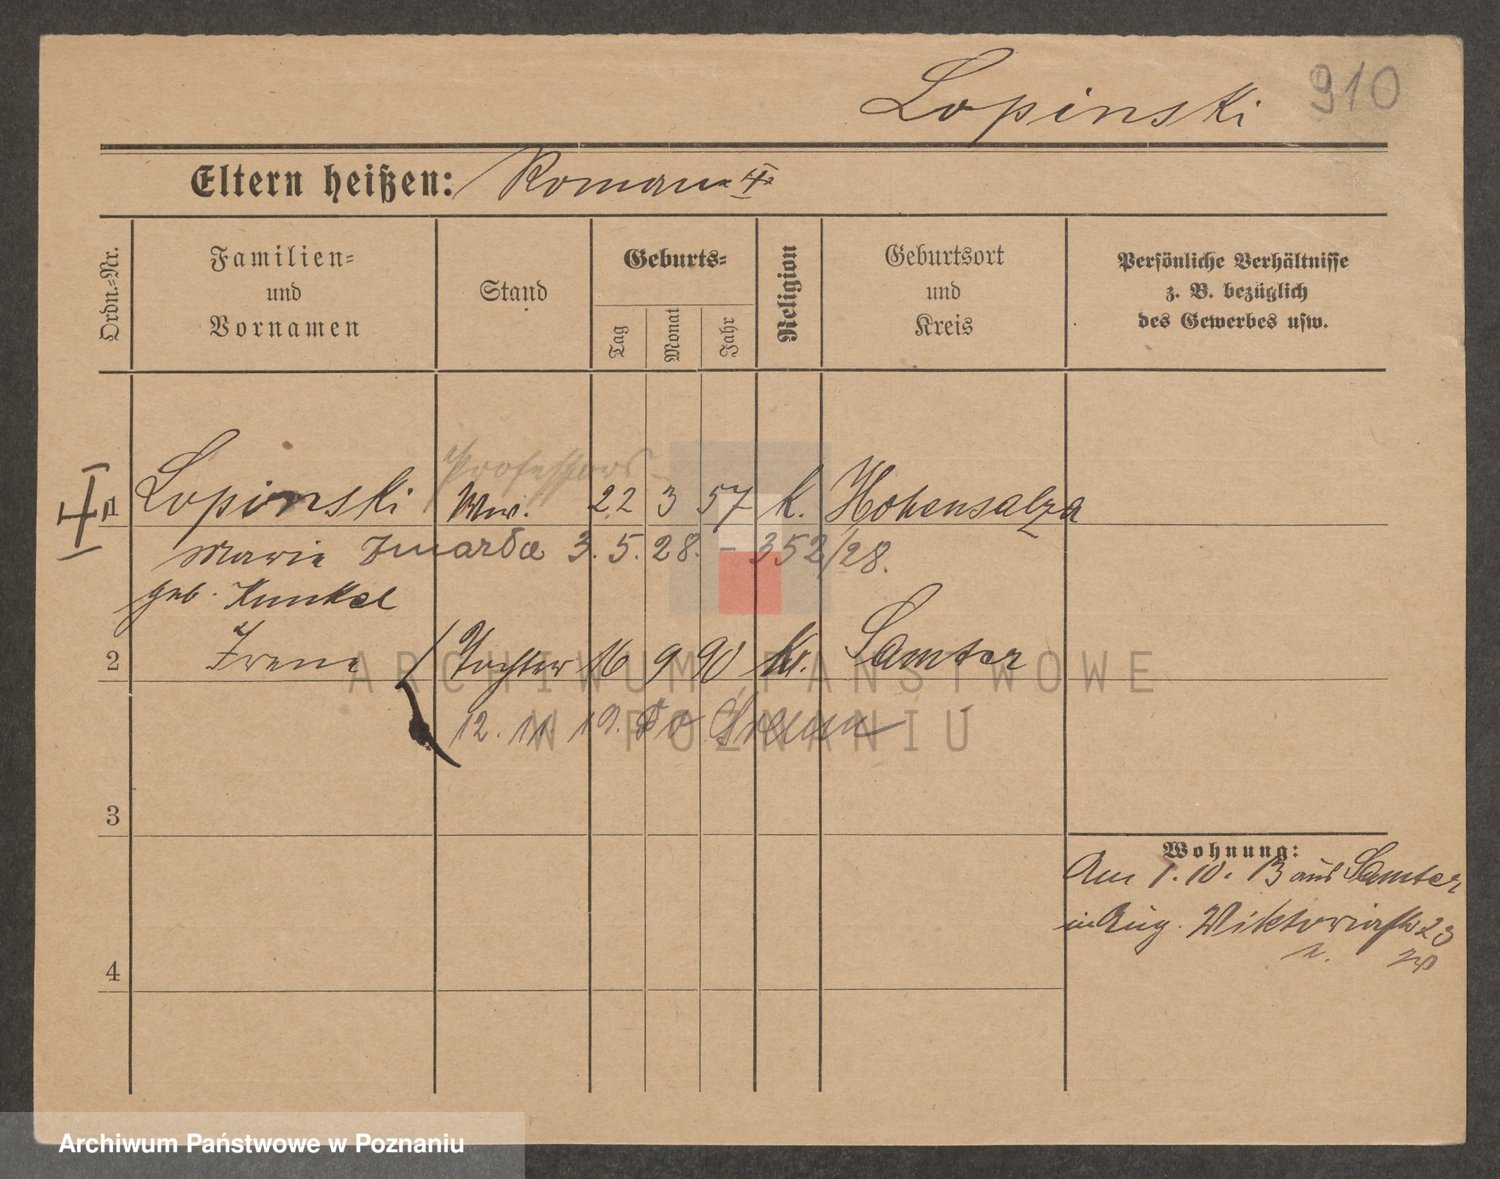 Lopinski 910
Eltern heißen: Roman
Ordn.-Nr.
Familien- und Vornamen
Stand
Geburts-
Tag
Monat
Jahr
Religion
Geburtsort und Kreis
Persönliche Verhältnisse z. B. bezüglich des Gewerbes usw.
Professors
1 Lopinski Ww. 22 3 57 k. Hohensalza
Marie Zmarła 3.5.28. – 352/28.
geb. Kunkel
2 Irene Tochter 16 9 90 k. Samter
12. 11 19.
3
Wohnung:
Am 1. 10. 13 aus Samter
in Zug. Viktoriastr 23
4
ARCHIWUM PAŃSTWOWE
W POZNANIU
Archiwum Państwowe w Poznaniu